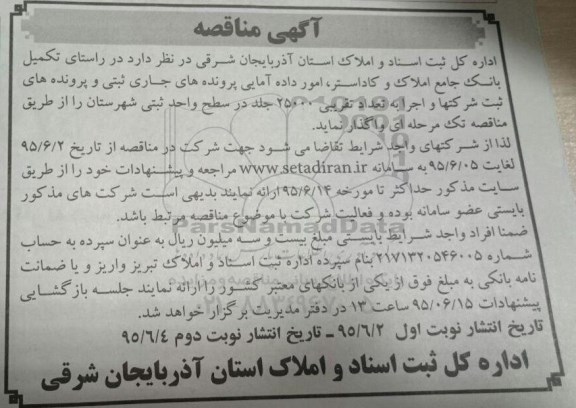 آگهی مناقصه
اداره کل ثبت اسناد و املاک استان آذربایجان شرقی در نظر دارد در راستای تکمیل
بانک جامع املاک و کاداستر، امور داده آمایی پرونده های جاری ثبتی و پرونده های
ثبت شرکتها و اجرا به تعداد تقریبی ۲۵۰۰۰ جلد در سطح واحد ثبتی شهرستان را از طریق
مناقصه تک مرحله ای واگذار نماید.
لذا از شرکتهای واجد شرایط تقاضا می شود جهت شرکت در مناقصه از تاریخ ۹۵/۶/۲
لغایت ۹۵/۶/۰۵ به سامانه www.setadiran.ir مراجعه و پیشنهادات خود را از طریق
سایت مذکور حداکثر تا مورخه ۹۵/۶/۱۴ ارائه نمایند بدیهی است شرکت های مذکور
بایستی عضو سامانه بوده و فعالیت شرکت با موضوع مناقصه مرتبط باشد.
ضمنا افراد واجد شرایط بایستی مبلغ بیست و سه میلیون ریال به عنوان سپرده به حساب
شماره ۲۱۷۱۳۲۰۵۴۶۰۰۵ بنام سپرده اداره ثبت اسناد و املاک تبریز واریز و یا ضمانت
نامه بانکی به مبلغ فوق از یکی از بانکهای معتبر کشور را ارائه نمایند جلسه بازگشایی
پیشنهادات ۹۵/۰۶/۱۵ ساعت ۱۳ در دفتر مدیریت برگزار خواهد شد.
تاریخ انتشار نوبت اول ۹۵/۶/۲ ـ تاریخ انتشار نوبت دوم ۹۵/۶/۴
اداره کل ثبت اسناد و املاک استان آذربایجان شرقی
ParsNamadData